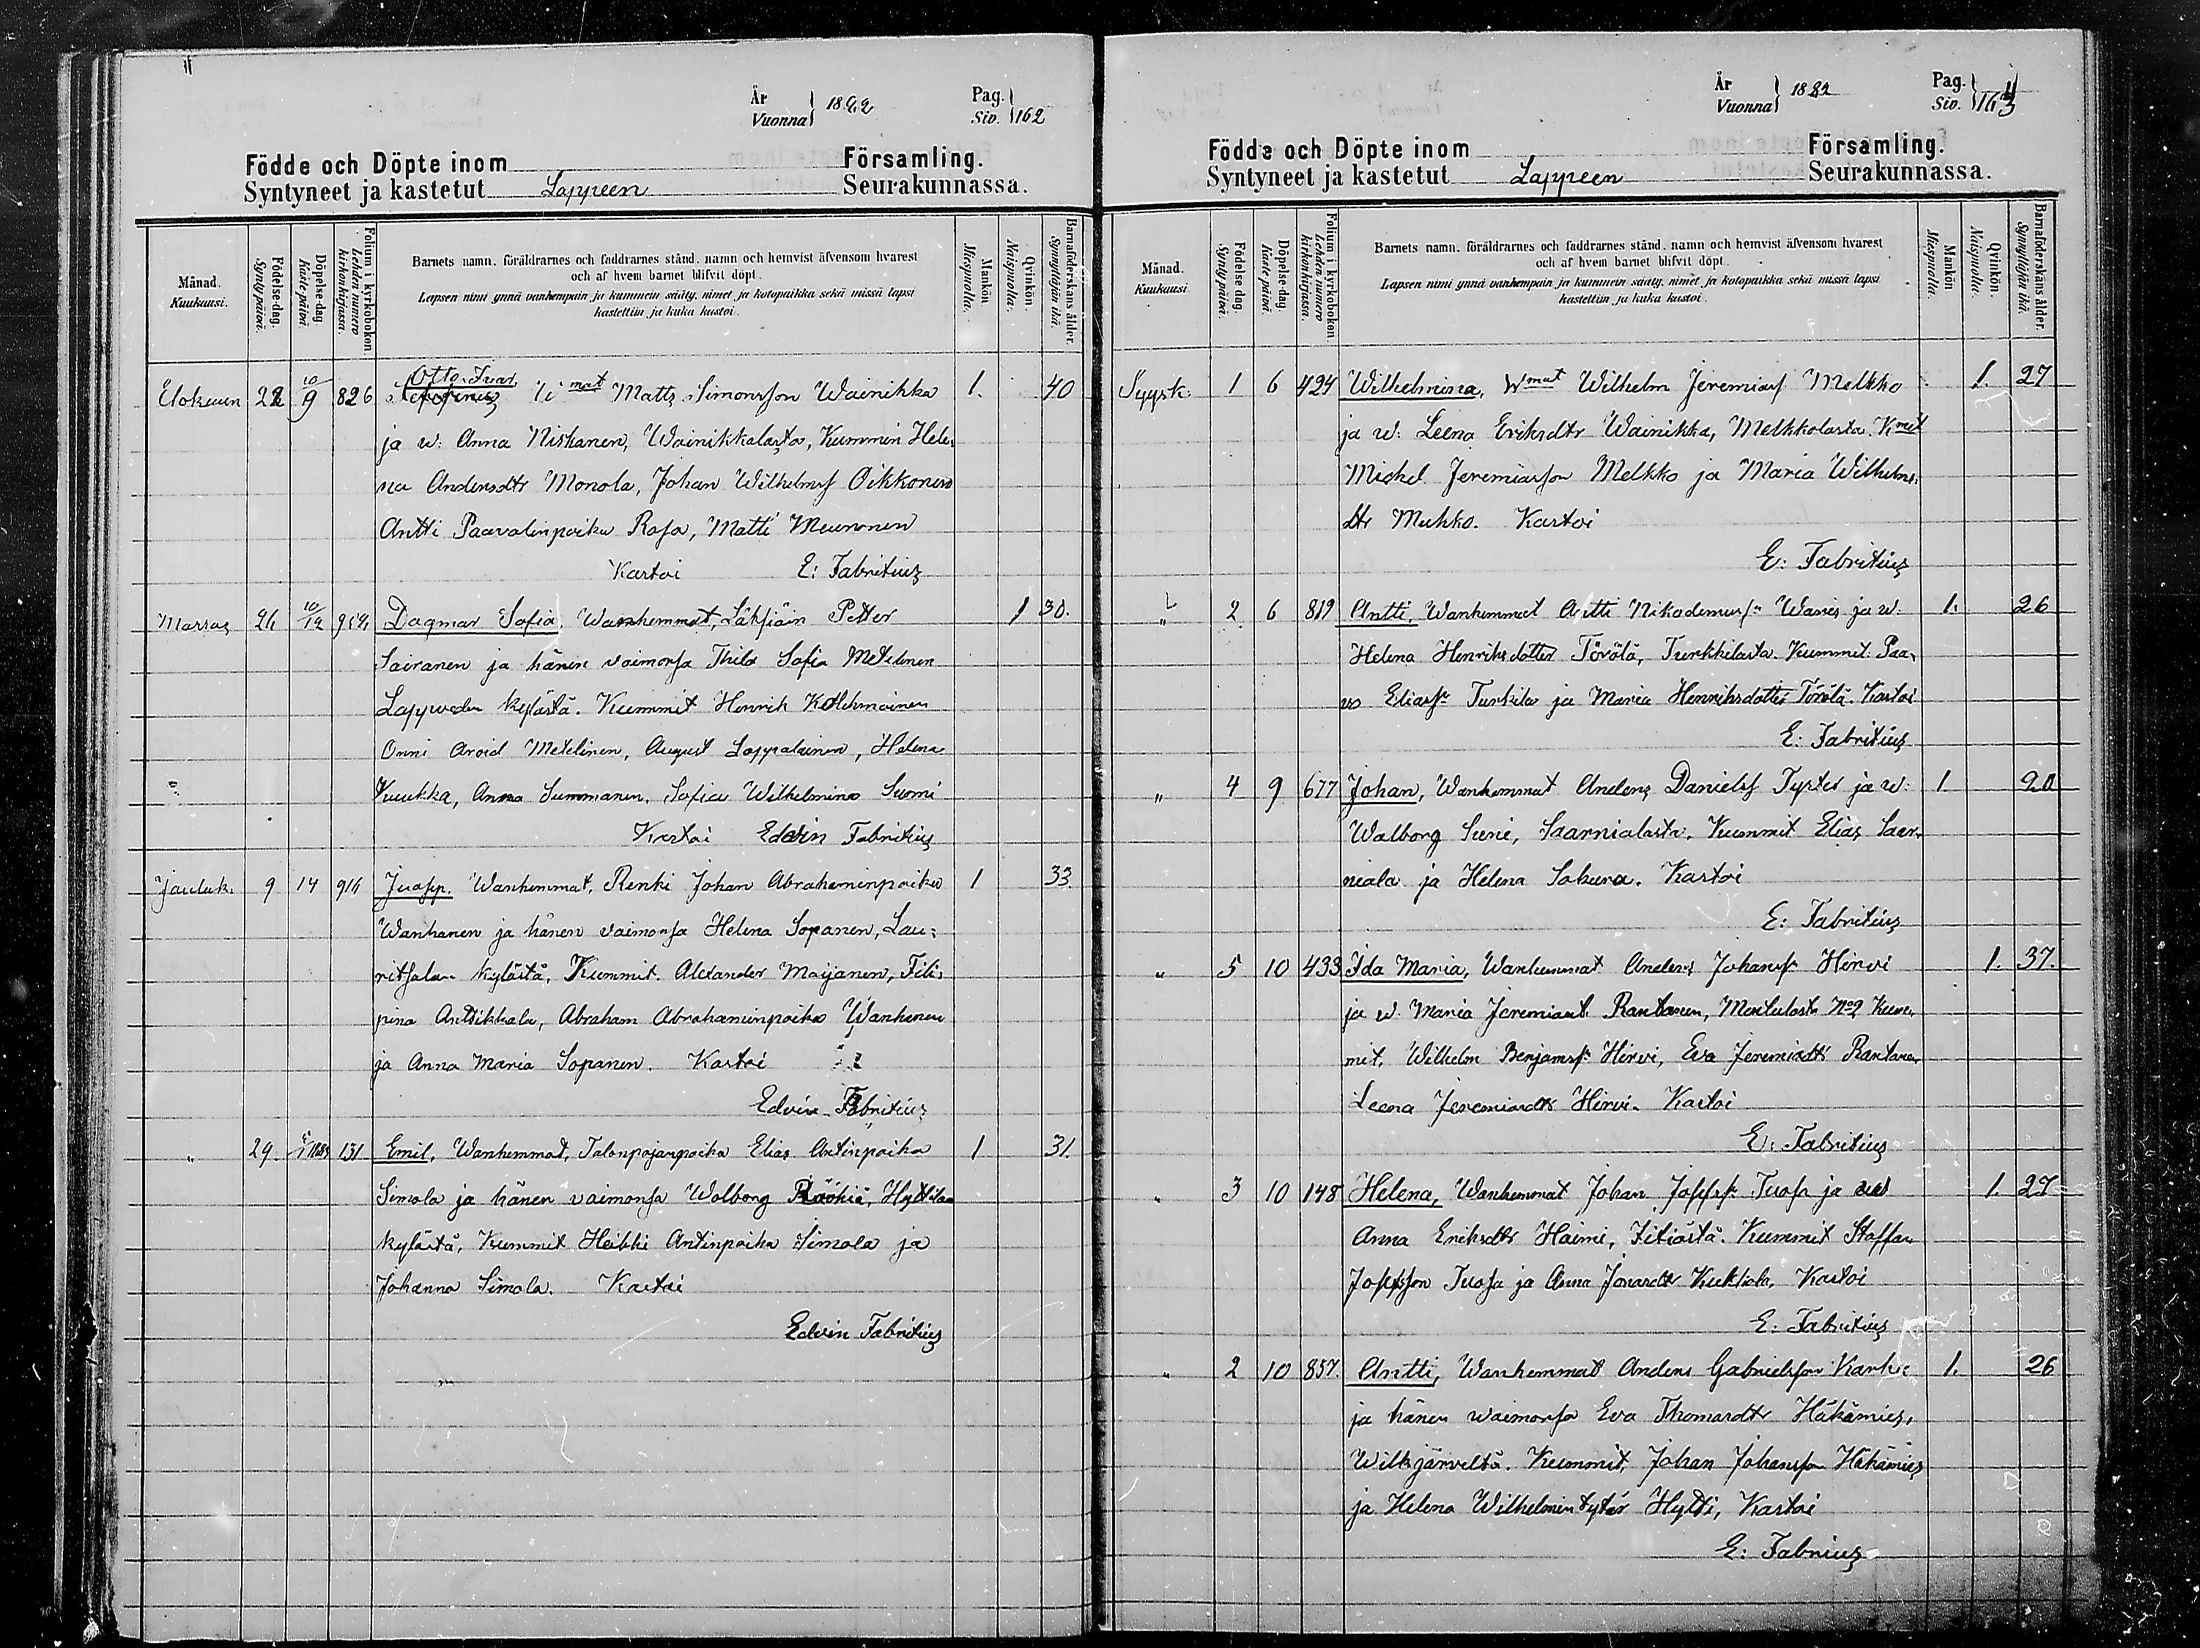 År
Vuonna
1882
Pag.
Siv.
162
Födde och Döpte inom Församling.
Syntyneet ja kastetut Lappeen Seurakunnassa.
Månad. Kuukausi.
Födelse-dag. Synty päivä.
Döpelse-dag. Kaste-päivä.
Folium i kyrkoboken. Lehden numero kirkonkirjassa.
Barnets namn, föräldrarnes och faddrarnes stånd, namn och hemvist äfvensom hvarest
och af hvem barnet blifvit döpt.
Lapsen nimi ynnä vanhempain ja kummein sääty, nimet ja kotopaikka sekä missä lapsi
kastettiin ja kuka kastoi.
Mankön. Miespuolta.
Qvinkön. Naispuolta.
Barnaföderskans ålder. Synnyttäjän ikä.
Otto Ivar
Elokuun 22 10/9 826 Matts Simonsson Wainikka 1. 40
ja w. Anna Niskanen, Wainikkalasta, Kummin Hele-
na Andersdtr Monola, Johan Wilhelmsf Oikkonen
Antti Paavalinpoika Rasa, Matti Meuronen
Kastoi E: Fabritius
Marras 26 10/12 Dagmar Sofia, Wanhemmat, Petter 1 30.
Sairanen ja hänen vaimonsa Thilda Sofia Metelinen
kylästä. Kummit Henrik Kolehmainen
Onni Arvid Metelinen, August Lappalainen, Helena
Kuukka, Anna Summanen, Sofia Wilhelmina Suomi
Kastoi Edvin Fabritius
Jouluk. 9 14 916 Juosep. Wanhemmat, Renki Johan Abrahaminpoika 1 33.
Wanhanen ja hänen vaimonsa Helena Sopanen, Lau-
ritsalan kylästä, Kummit. Alexander Maijanen, Fili-
pina Antikkala, Abraham Abrahaminpoika Wanhanen
ja Anna Maria Sopanen. Kastoi
Edvin Fabritius
" 29. 1883 131 Emil, Wanhemmat, Talonpojanpoika Elias Antinpoika 1 31.
Simola ja hänen vaimonsa Wolborg Räähiä, Hyttilän
kylästä, Kummit Heikki Antinpoika Simola ja
Johanna Simola. Kastoi
Edvin Fabritius
År
Vuonna
1882
Pag.
Siv.
163
Födde och Döpte inom Församling.
Syntyneet ja kastetut Lappeen Seurakunnassa.
Månad. Kuukausi
Födelse dag. Synty päivä.
Döpelse-dag. Kaste päivä.
Folium i kyrkoboken. Lehden numero kirkonkirjassa.
Barnets namn, föräldrarnes och faddrarnes stånd, namn och hemvist äfvensom hvarest
och af hvem barnet blifvit döpt.
Lapsen nimi ynnä vanhempain ja kummein sääty, nimet ja kotopaikka sekä missä lapsi
kastettiin ja kuka kastoi.
Mankön Miespuolta.
Qvinkön. Naispuolta.
Barnaföderskans ålder. Synnyttäjän ikä.
Syysk. 1 6 424 Wilhelmina, Wmat Wilhelm Jeremiasf Melkko 1. 27
ja w. Leena Eriksdtr Wainikka, Melkkolasta. Kmit
Mickel Jeremiasson Melkko ja Maria Wilhelms-
dtr Muhko. Kastoi
E: Fabritius
" 2 6 819 Antti, Wanhemmat Antti Nikodemusf Wanis ja w. 1. 26
Helena Henriksdotter Törölä, Turkkilasta. Kummit. Paa-
vo Eliasf Turkila ja Maria Henriksdotter Törölä. Kastoi
E: Fabritius
" 4 9 677 Johan, Wanhemmat Anders Danielsf Tyster ja w. 1 20
Walborg Suni, Saarnialasta, Kummit Elias Saar-
niala ja Helena Sakura. Kastoi
E: Fabritius
" 5 10 433 Ida Maria, Wanhemmat Anders Johansf Hirvi 1. 37.
ja w. Maria Jeremiasdt. Rantanen, No 2 Kum-
mit, Wilhelm Benjamsf Hirvi, Eva Jeremiadtr Rantanen
Leena Jeremiasdtr Hirvi. Kastoi
E: Fabritius
" 3 10 148 Helena, Wanhemmat Johan Josefsf Tuosa ja 1. 27
Anna Eriksdtr Haimi, Kummit Staffan
Josefsson Tuosa ja Anna Jonasdtr Kukkola, Kastoi
E: Fabritius
" 2 10 857. Antti, Wanhemmat Anders Gabrielsson Karhu 1. 26
ja hänen waimonsa Eva Thomasdtr Häkämies,
Wilkjärveltä. Kummit, Johan Johansson Häkämies
ja Helena Wilhelmintytär Hytti, Kastoi
E: Fabrius